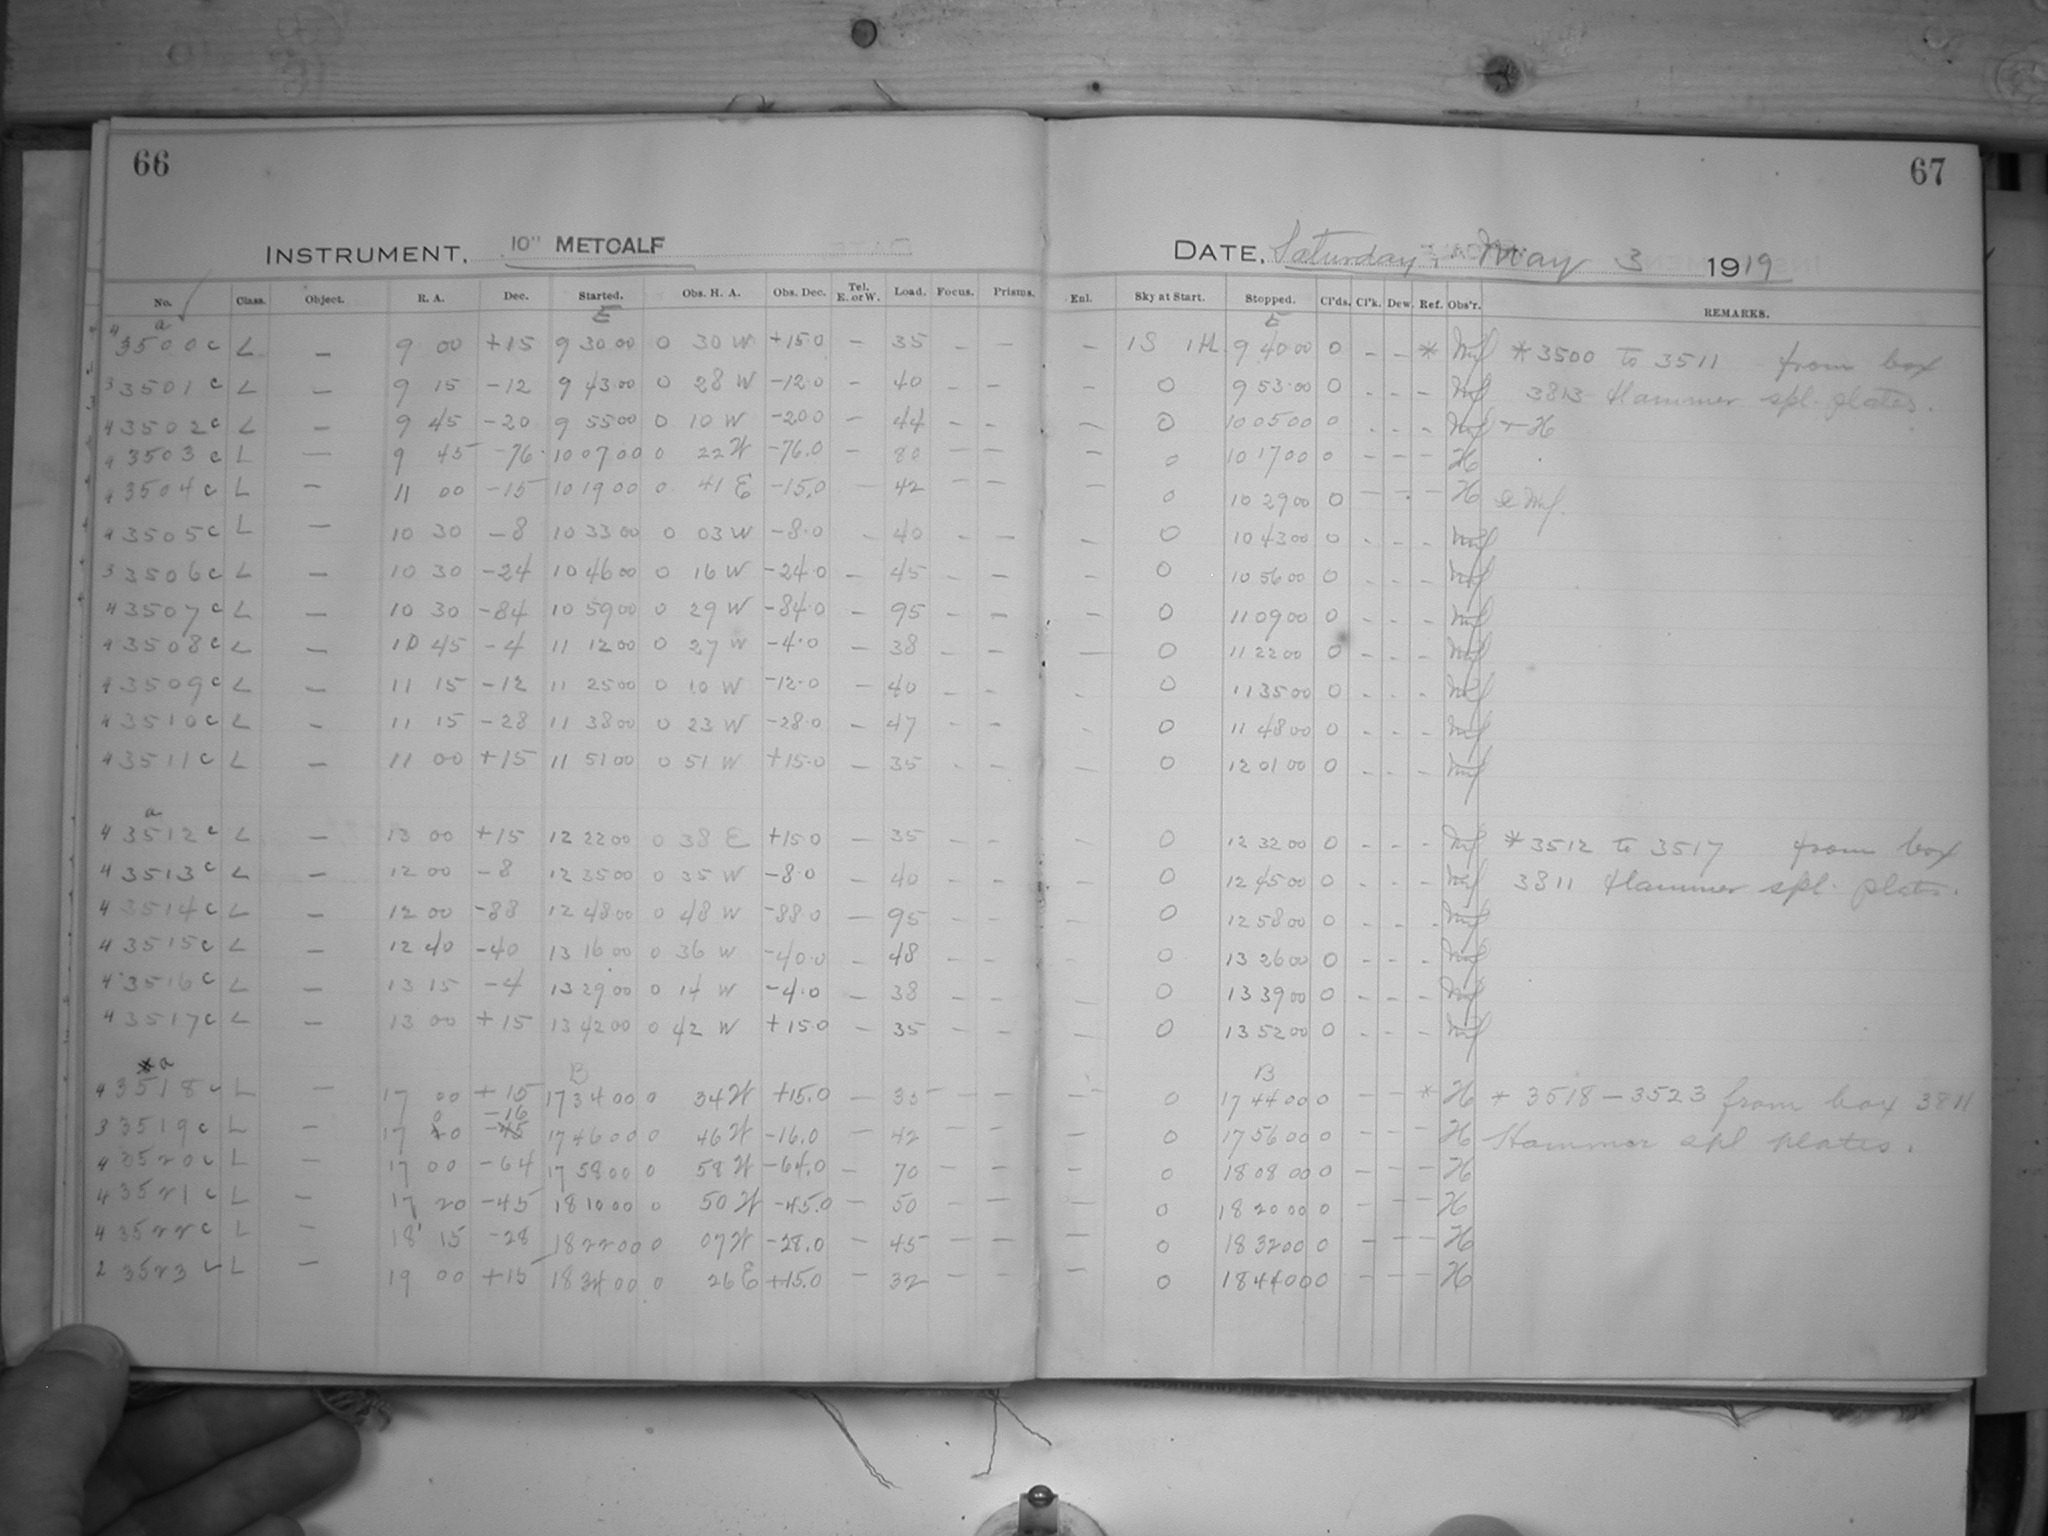 66
67
INSTRUMENT. 10" METCALF
DATE. Saturday, May 3 1919
No. Class. Object. R. A. Dec. Started. Obs. H. A. Obs. Dec. Tel. E. or W. Load. Focus. Prisms. Enl. Sky at Start. Stopped. Cl'ds. Cl'k. Dew. Ref. Obs'r. REMARKS.
E E
a
4 3500 c L — 9 00 +15 9 30 00 0 30 W +15.0 — 35 — — — 1S 1H 9 40 00 0 - - * *3500 to 3511 from box
3 3501 c L — 9 15 -12 9 43 00 0 28 W -12.0 — 40 — — — 0 9 53 00 0 - - - 3813 Hammer spl. plates.
4 3502 c L — 9 45 -20 9 55 00 0 10 W -20.0 — 44 — — — 0 10 05 00 0 - - - + H
4 3503 c L — 9 45 -76 10 07 00 0 22 W -76.0 — 80 — — — 0 10 17 00 0 - - - H
4 3504 c L — 11 00 -15 10 19 00 0 41 E -15.0 — 42 — — — 0 10 29 00 0 - - - H
4 3505 c L — 10 30 -8 10 33 00 0 03 W -8.0 — 40 — — — 0 10 43 00 0 - - -
3 3506 c L — 10 30 -24 10 46 00 0 16 W -24.0 — 45 — — — 0 10 56 00 0 - - -
4 3507 c L — 10 30 -84 10 59 00 0 29 W -84.0 — 95 — — — 0 11 09 00 0 - - -
4 3508 c L — 10 45 -4 11 12 00 0 27 W -4.0 — 38 — — — 0 11 22 00 0 - - -
4 3509 c L — 11 15 -12 11 25 00 0 10 W -12.0 — 40 — — - 0 11 35 00 0 - - -
4 3510 c L — 11 15 -28 11 38 00 0 23 W -28.0 — 47 — — - 0 11 48 00 0 - - -
4 3511 c L — 11 00 +15 11 51 00 0 51 W +15.0 — 35 - — — 0 12 01 00 0 - - -
a
4 3512 c L — 13 00 +15 12 22 00 0 38 E +15.0 — 35 — — — 0 12 32 00 0 - - - *3512 to 3517 from box
4 3513 c L — 12 00 -8 12 35 00 0 35 W -8.0 — 40 — — — 0 12 45 00 0 - - - 3811 Hammer spl. plates.
4 3514 c L — 12 00 -88 12 48 00 0 48 W -88.0 — 95 — — — 0 12 58 00 0 - - -
4 3515 c L — 12 40 -40 13 16 00 0 36 W -40.0 — 48 — — 0 13 26 00 0 - - -
4 3516 c L — 13 15 -4 13 29 00 0 14 W -4.0 — 38 — — — 0 13 39 00 0 - - -
4 3517 c L — 13 00 +15 13 42 00 0 42 W +15.0 — 35 — — — 0 13 52 00 0 - - -
*a B B
4 3518 c L — 17 00 +15 17 34 00 0 34 W +15.0 — 35 — — — 0 17 44 00 0 - - * H * 3518 — 3523 from box 3811
3 3519 c L — 17 0 -16 17 46 00 0 46 W -16.0 — 42 — — — 0 17 56 00 0 - - - H Hammer spl plates.
4 3520 c L — 17 00 -64 17 58 00 0 58 W -64.0 — 70 — — — 0 18 08 00 0 - - - H
4 3521 c L — 17 20 -45 18 10 00 0 50 W -45.0 — 50 — — — 0 18 20 00 0 - - - H
4 3522 c L — 18 15 -28 18 22 00 0 07 W -28.0 — 45 — — — 0 18 32 00 0 - - - H
2 3523 c L — 19 00 +15 18 34 00 0 26 E +15.0 — 32 — — — 0 18 44 00 0 - - - H